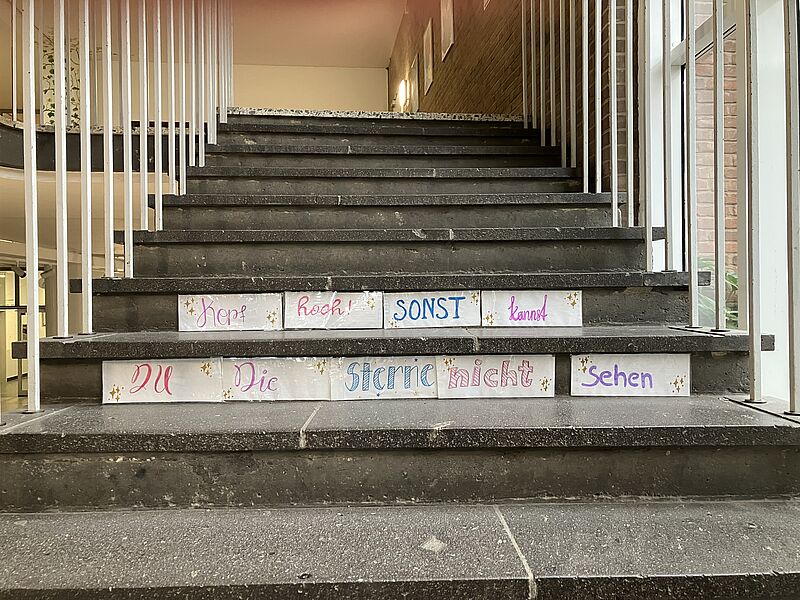 Kopf hoch! SONST kannst
DU Die Sterne nicht Sehen